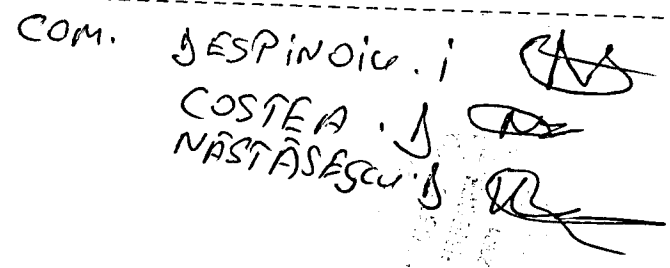 COM. DESPINOIU. i
COSTEA. D
NĂSTĂSESCU. D